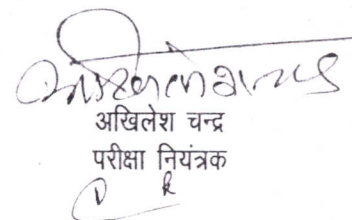 अखिलेश चन्द्र
परीक्षा नियंत्रक